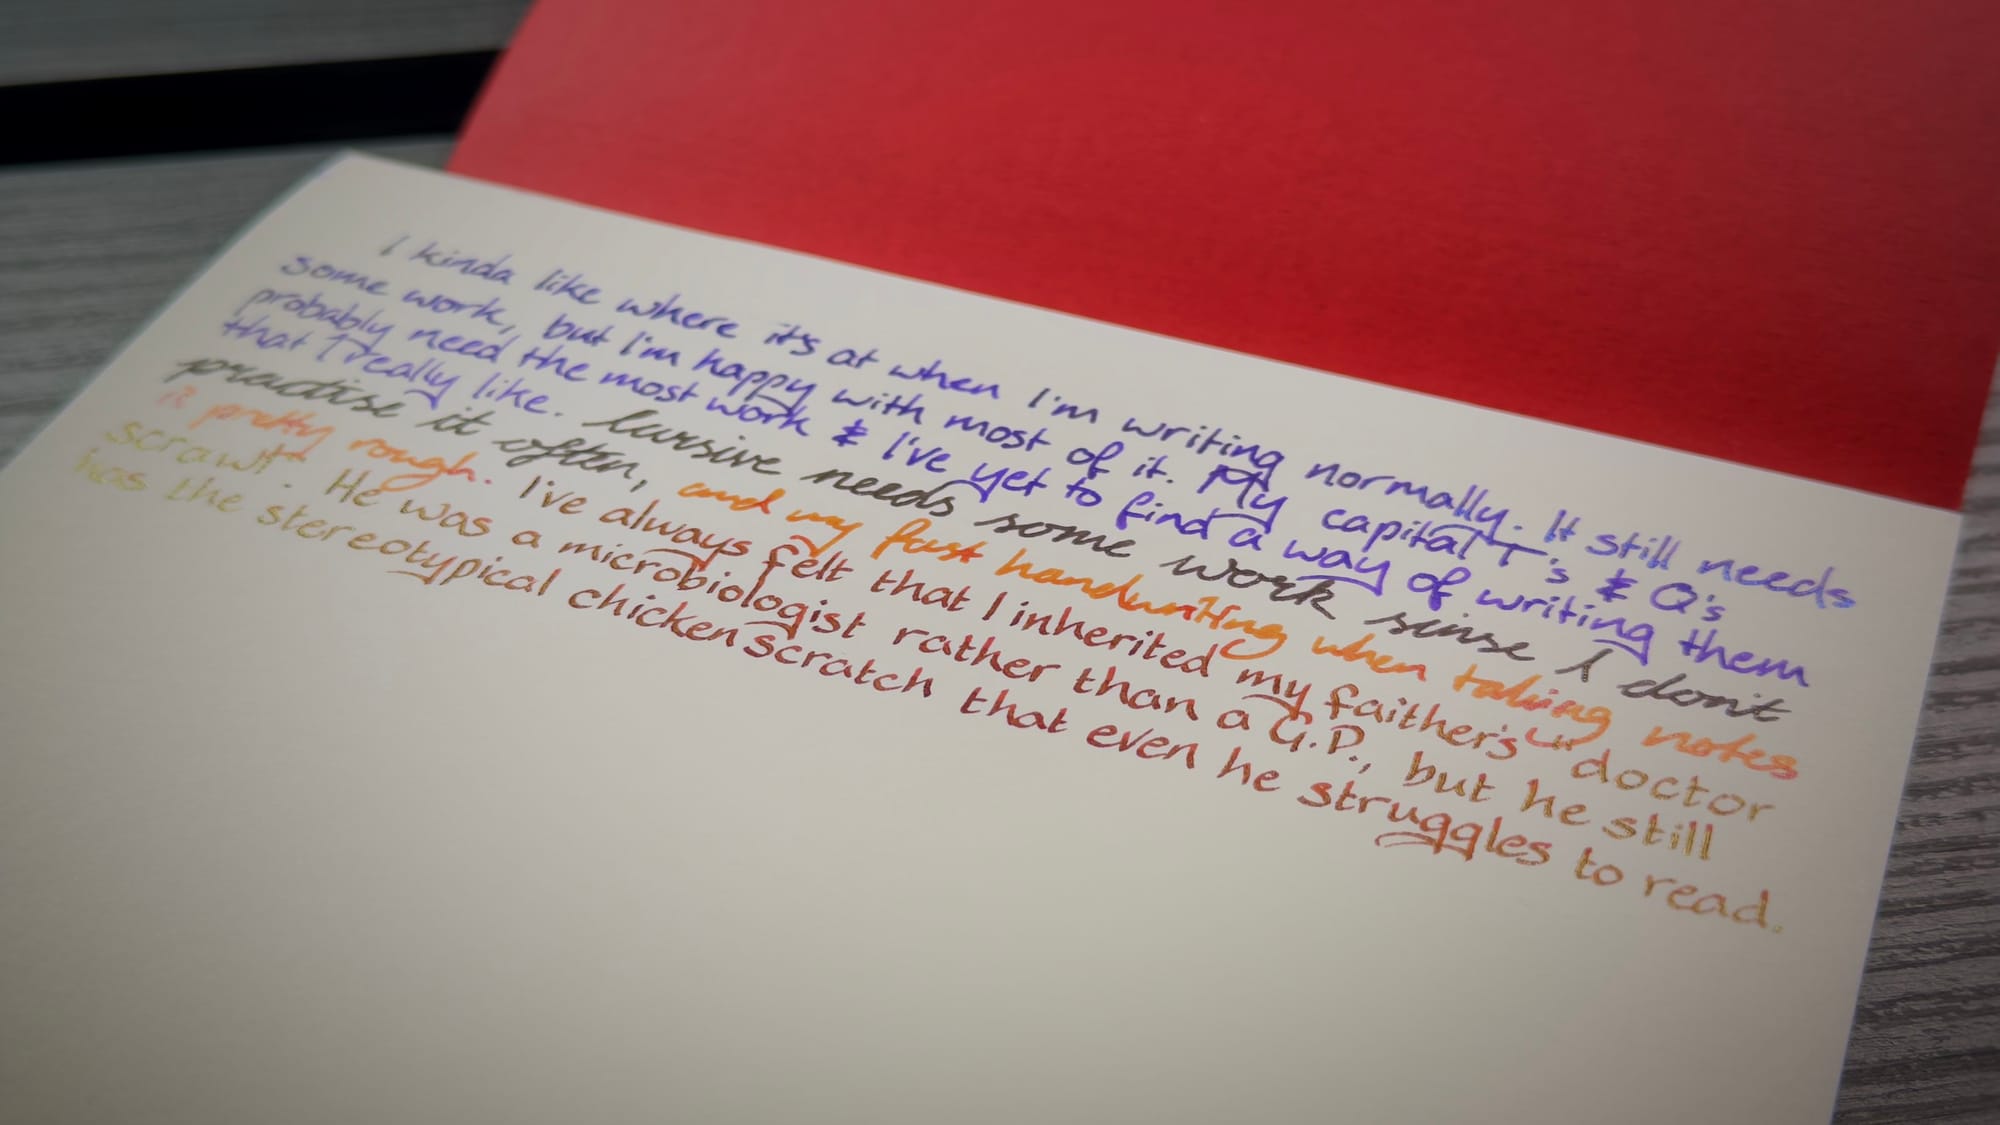 I kinda like where it's at when I'm writing normally. It still needs
some work, but I'm happy with most of it. My capital T's & Q's
probably need the most work & I've yet to find a way of writing them
that I really like. Cursive needs some work sinse I don't
practise it often, and my fast handwriting when taking notes
is pretty rough. I've always felt that I inherited my faither's "doctor
scrawl". He was a microbiologist rather than a G.P., but he still
has the stereotypical chicken scratch that even he struggles to read.